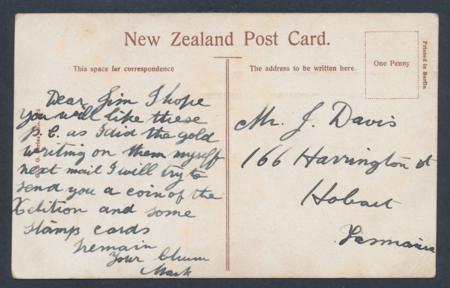 New Zealand Post Card.
This space for correspondence
The address to be written here.
One Penny
Printed in Berlin.
Dear Jim I hope
you will like these
P.C. as I did the gold
writing on them myself
next mail I will try to
send you a coin of the
Xibition and some
stamps cards
I remain
Your Chum
Mark
Mr. J. Davis
166 Harrington st
Hobart
Tasmania